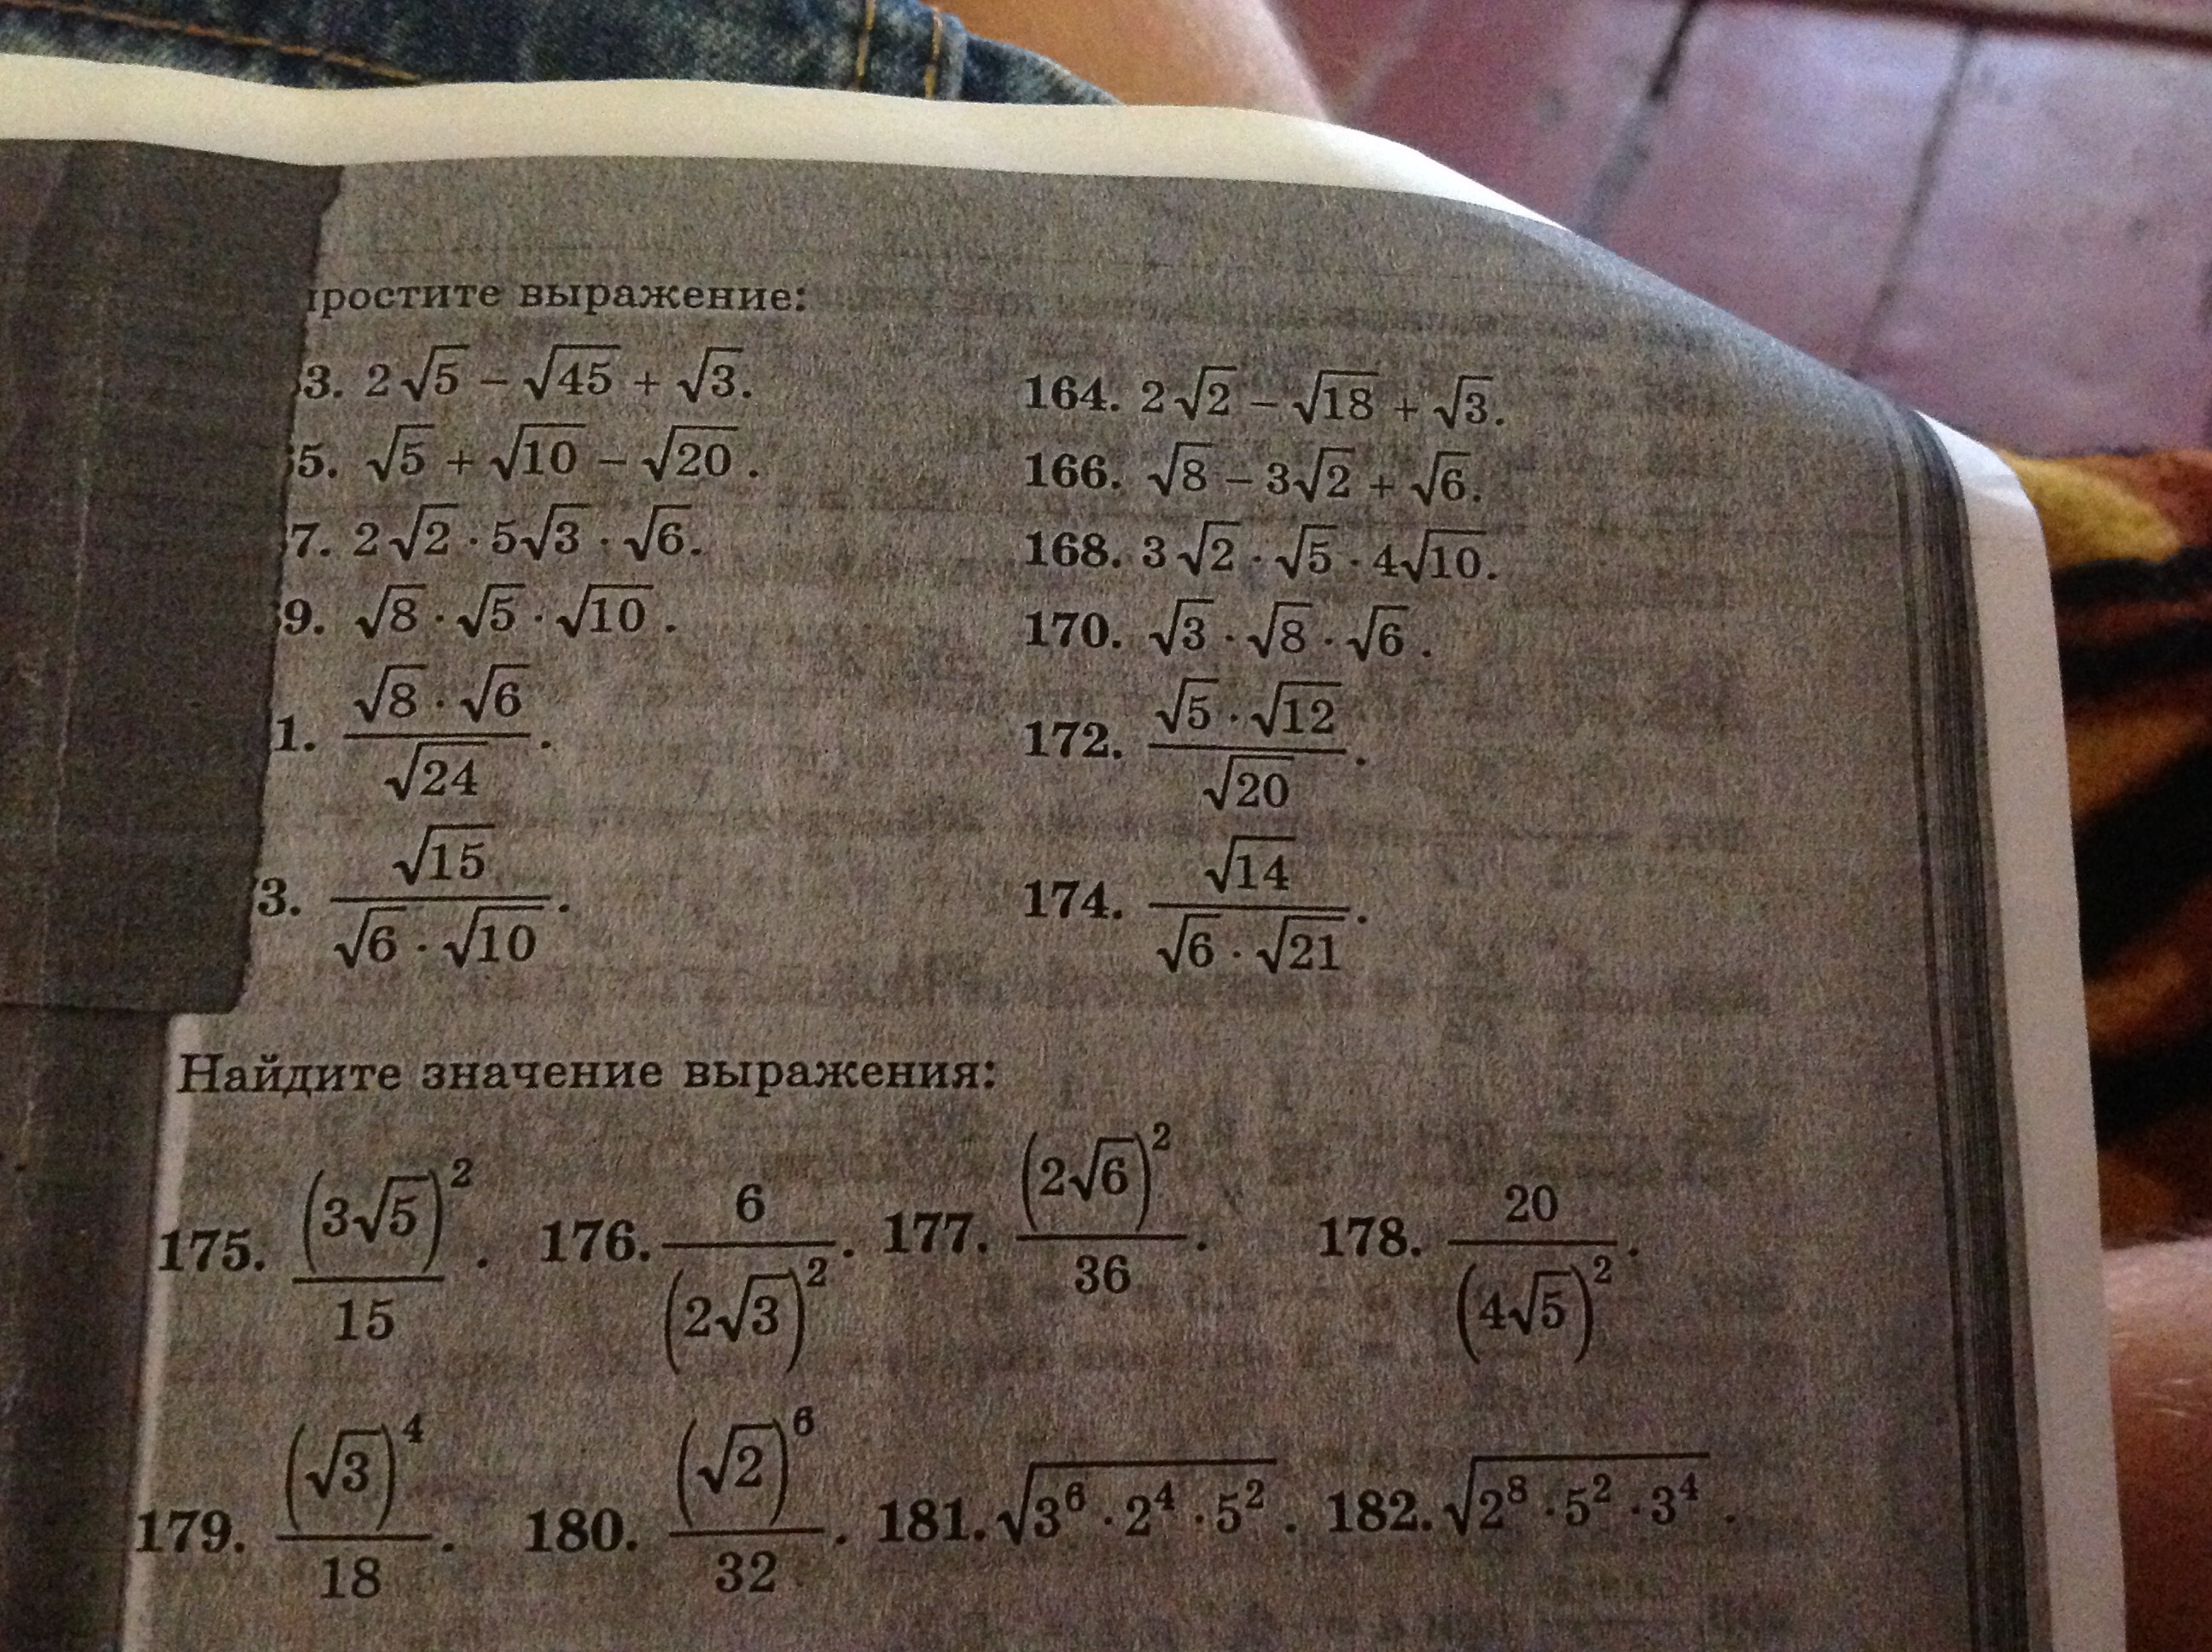 простите выражение:
3. 2√5 − √45 + √3. 164. 2√2 − √18 + √3.
5. √5 + √10 − √20. 166. √8 − 3√2 + √6.
7. 2√2 · 5√3 · √6. 168. 3√2 · √5 · 4√10.
9. √8 · √5 · √10. 170. √3 · √8 · √6.
1. (√8 · √6)/√24. 172. (√5 · √12)/√20.
3. √15/(√6 · √10). 174. √14/(√6 · √21).
Найдите значение выражения:
175. (3√5)²/15. 176. 6/(2√3)². 177. (2√6)²/36. 178. 20/(4√5)².
179. (√3)⁴/18. 180. (√2)⁶/32. 181. √(3⁶ · 2⁴ · 5²). 182. √(2⁸ · 5² · 3⁴).